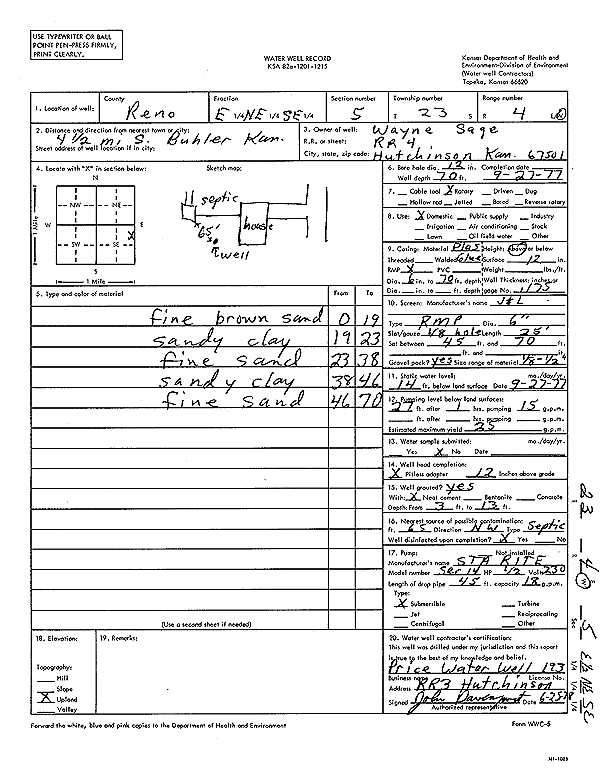 USE TYPEWRITER OR BALL
POINT PEN-PRESS FIRMLY,
PRINT CLEARLY.
WATER WELL RECORD
KSA 82a-1201-1215
Kansas Department of Health and
Environment-Division of Environment
(Water well Contractors)
Topeka, Kansas 66620
1. Location of well:
County
Reno
Fraction
E 1/4 NE 1/4 SE 1/4
Section number
5
Township number
T 23 S
Range number
R 4 E/W
2. Distance and direction from nearest town or city:
4 1/2 mi S. Buhler Kan.
Street address of well location if in city:
3. Owner of well: Wayne Sage
R.R. or street: RR 4
City, state, zip code: Hutchinson Kan. 67501
4. Locate with "X" in section below:
N
NW NE
W E
SW SE
X
S
1 Mile
1 Mile
Sketch map:
septic
65'
house
well
6. Bore hole dia. 12 in. Completion date
Well depth 70 ft. 9-27-77
7. Cable tool X Rotary Driven Dug
Hollow rod Jetted Bored Reverse rotary
8. Use: X Domestic Public supply Industry
Irrigation Air conditioning Stock
Lawn Oil field water Other
9. Casing: Material Plas Height: Above or below
Threaded Welded Glue Surface 12 in.
RMP X PVC Weight lbs./ft.
Dia. 6 in. to 70 ft. depth Wall Thickness: inches or
Dia. in. to ft. depth gage No.
5. Type and color of material
From To
fine brown sand 0 19
sandy clay 19 23
fine sand 23 38
sandy clay 38 46
fine sand 46 70
(Use a second sheet if needed)
10. Screen: Manufacturer's name J&L
Type RMP Dia. 6"
Slot/gauze 1/8 hole Length 25'
Set between 45 ft. and 70 ft.
ft. and ft.
Gravel pack? yes Size range of material 1/8-1/2"
11. Static water level: mo./day/yr.
14 ft. below land surface Date 9-27-77
12. Pumping level below land surface:
27 ft. after 1 hrs. pumping 15 g.p.m.
ft. after hrs. pumping g.p.m.
Estimated maximum yield 25 g.p.m.
13. Water sample submitted: mo./day/yr.
Yes X No Date
14. Well head completion:
X Pitless adapter 12 Inches above grade
15. Well grouted? yes
With: X Neat cement Bentonite Concrete
Depth: From 3 ft. to 13 ft.
16. Nearest source of possible contamination:
ft. 65 Direction NW Type Septic
Well disinfected upon completion? X Yes No
17. Pump: Not installed
Manufacturer's name STA RITE
Model number Ser 14 HP 1/2 Volts 230
Length of drop pipe 45 ft. capacity 18 g.p.m.
Type:
X Submersible Turbine
Jet Reciprocating
Centrifugal Other
18. Elevation:
Topography:
Hill
Slope
X Upland
Valley
19. Remarks:
20. Water well contractor's certification:
This well was drilled under my jurisdiction and this report
is true to the best of my knowledge and belief.
Price Water Well 193
Business name License No.
Address RR3 Hutchinson
Signed John Davenport Date 6-25-78
Authorized representative
23 - 4 W - 5 E 1/2 NE SE
Sec 1/4 1/4 1/4
Forward the white, blue and pink copies to the Department of Health and Environment
Form WWC-5